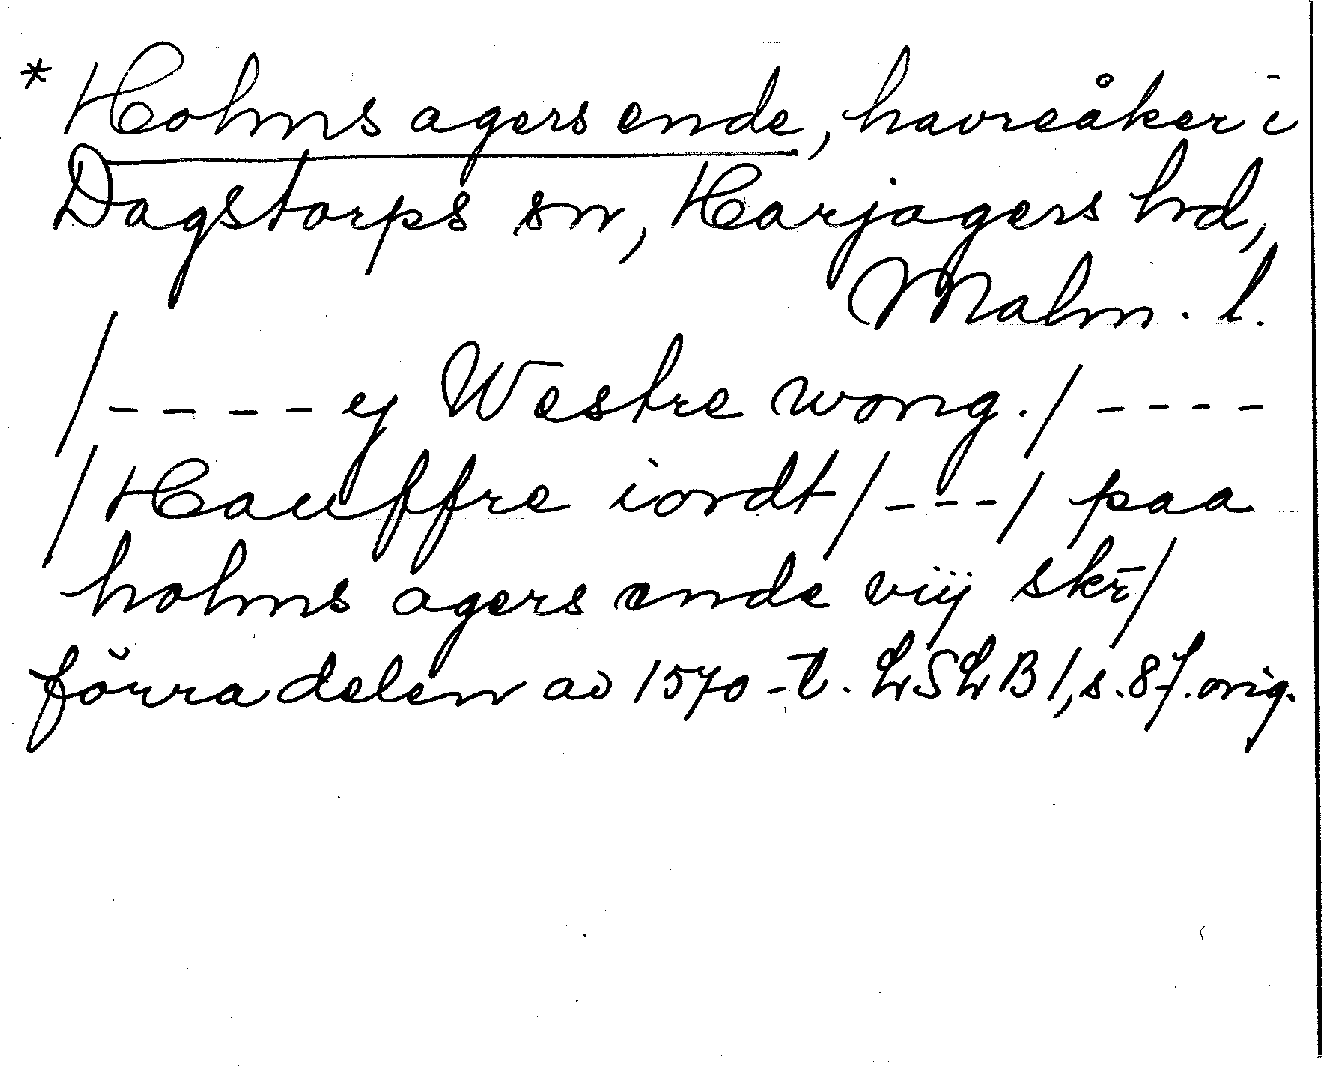 * Holms agers ende, havreåker i
Dagstorps sn, Harjagers hd,
Malm. l.
/---- ej Westre wong./----
/Hauffre iordt/---/ paa
holms agers ende viij skr̄/
förra delen av 1570-t. LSLB 1, s. 8f. orig.